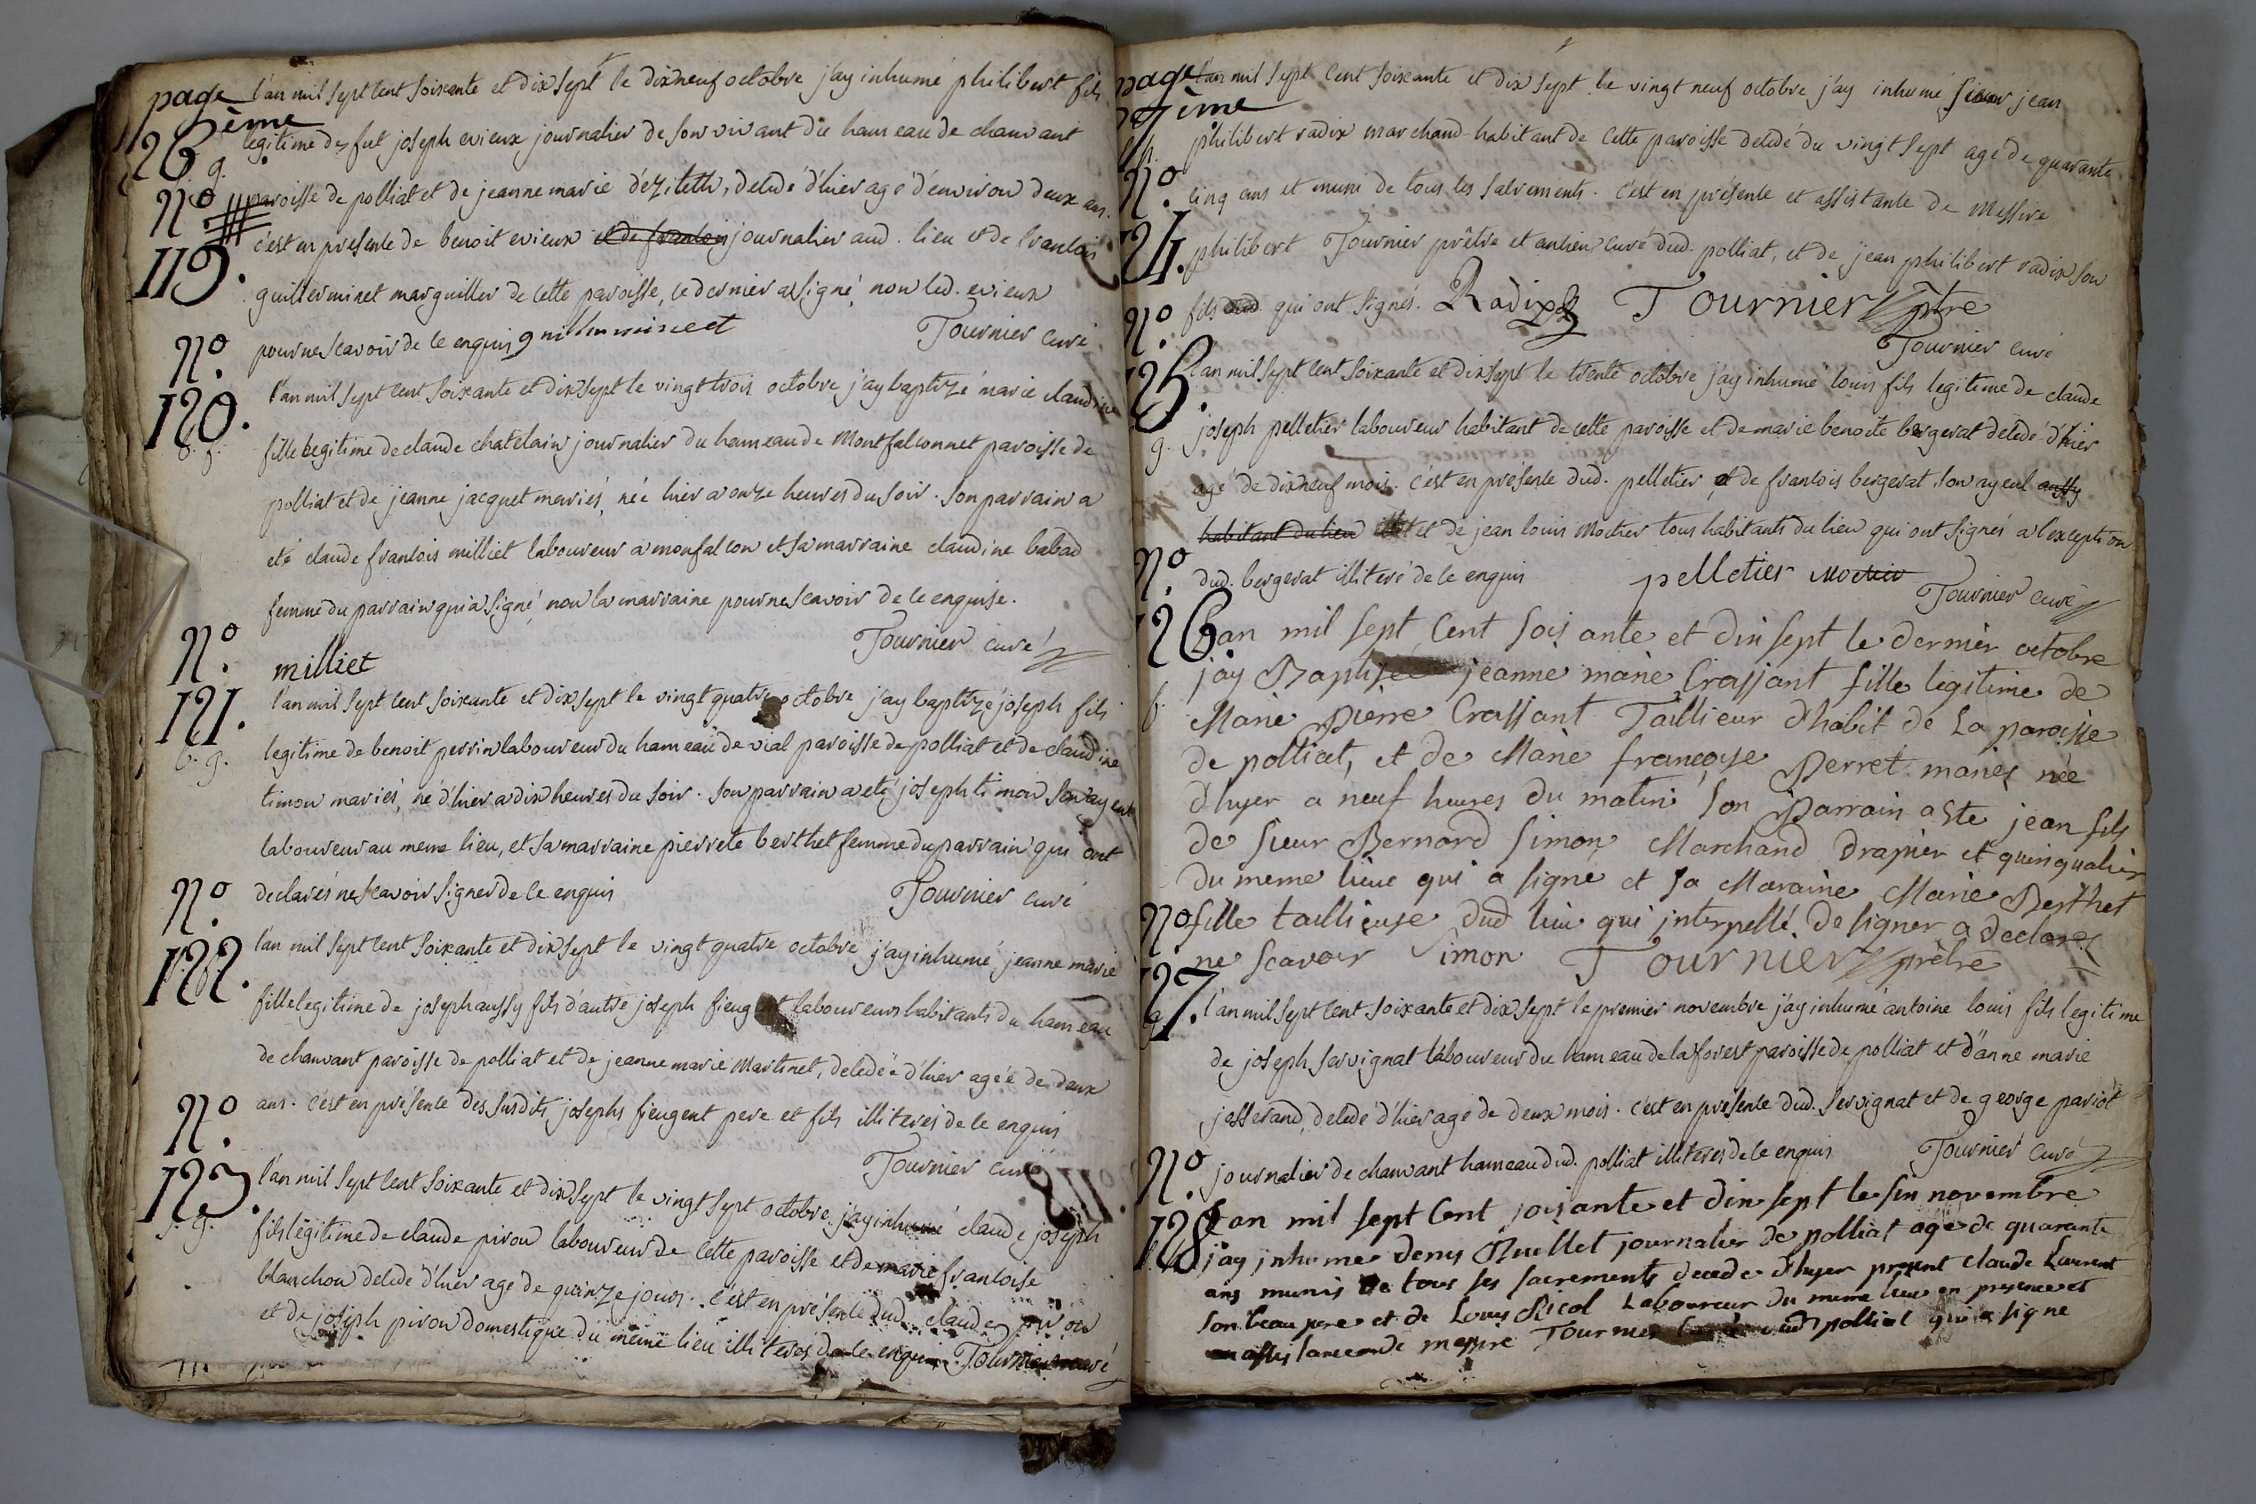 page
26ème
g.
l'an mil sept cent soixante et dix sept le dix neuf octobre j'ay inhumé philibert fils
legitime de fut joseph evieux journalier de son vivant du hameau de chanvant
paroisse de polliat et de jeanne marie , decedé d'hier agé d'environ deux ans.
N°
119.
c'est en presence de benoit evieux et de francois journalier aud. lieu et de francois
guillerminet marguiller de cette paroisse, ce dernier a signé, non led. evieux
pour ne scavoir de ce enquis guillerminet Tournier curé
N°
120.
l'an mil sept cent soixante et dix sept le vingt trois octobre j'ay baptizé marie claudine
fille legitime de claude chatelain journalier du hameau de Montfalconnet paroisse de
polliat et de jeanne jacquet mariés, née hier a onze heures du soir. son parrain a
eté claude francois milliet laboureur a monfalcon et sa marraine claudine babad
femme du parrain qui a signé, non la marraine pour ne scavoir de ce enquise.
Tournier curé
milliet
N°
121.
b. g.
l'an mil sept cent soixante et dix sept le vingt quatre octobre j'ay baptizé joseph fils
legitime de benoit perrin laboureur du hameau de vial paroisse de polliat et de claudine
timon mariés, né d'hier a dix heures du soir. son parrain a eté joseph timon son ayeul
laboureur au meme lieu, et sa marraine pierrete berthet femme du parrain qui ont
declarés ne scavoir signer de ce enquis Tournier curé
N°
122.
l'an mil sept cent soixante et dix sept le vingt quatre octobre j'ay inhumé jeanne marie
fille legitime de joseph aussy fils d'autre joseph fieugent laboureurs habitants du hameau
de chanvant paroisse de polliat et de jeanne marie Martinet, decedée d'hier agée de deux
ans. c'est en présence des susdits josephs fieugent pere et fils illiterés de ce enquis
Tournier curé
N°
123.
s. g.
l'an mil sept cent soixante et dix sept le vingt sept octobre j'ay inhumé claude joseph
fils legitime de claude pirou laboureur de cette paroisse et de marie francoise
blanchon decedé d'hier agé de quinze jours. c'est en présence dud. claude pirou
et de joseph pirou domestique du même lieu illiterés de ce enquis. Tournier curé
page
27ème
N°
124.
l'an mil sept cent soixante et dix sept le vingt neuf octobre j'ay inhumé sieur jean
philibert radix marchand habitant de cette paroisse decedé du vingt sept agé de quarante
cinq ans et muni de tous les sacrements. c'est en présence et assistance de Messire
philibert Tournier prêtre et ancien curé dud. polliat, et de jean philibert radix son
fils qui ont signés. Radix Tournier ptre
Tournier curé
N°
125.
g.
l'an mil sept cent soixante et dix sept le trente octobre j'ay inhumé louis fils legitime de claude
joseph pelletier laboureur habitant de cette paroisse et de marie benoite bergerat decedé d'hier
agé de dix neuf mois. c'est en présence dud. pelletier et de francois bergerat son ayeul aussy
habitant du lieu et de jean louis Mochier tous habitants du lieu qui ont signés a l'exception
dud. bergerat illiteré de ce enquis pelletier Mochier
Tournier curé
N°
126
b
Lan mil sept Cent soisante et din sept le dernier octobre
jay Baptisée jeanne marie Crassant fille legitime de
Marie Pierre Crassant Taillieur d'habit de La paroisse
de polliat, et de Marie françoise Perret mariés née
d'hyer a neuf heures du matin son Parrain a Ete jean fils
de sieur Bernard Simon Marchand Drapier et quinqualier
du meme lieu qui a signé et sa Maraine Marie Berthet
fille taillieuse dud lieu qui interpellé de signer a declarer
ne scavoir Simon Tournier prêtre
N°
127.
g
l'an mil sept cent soixante et dix sept le premier novembre j'ay inhumé antoine louis fils legitime
de joseph servignat laboureur du hameau de la forest paroisse de polliat et d'anne marie
josserand, decedé d'hier agé de deux mois. c'est en présence dud. servignat et de george pariot
journalier de chanvant hameau dud. polliat illiterés de ce enquis Tournier curé
N°
128
Lan mil sept Cent soisante et din sept le sin novembre
jay inhumé Denis Ruellet journalier de polliat agé de quarante
ans munis de tous ses sacrements decede d'hyer present claude Laurent
son beau pere et de Louis Picol Laboureur du meme lieu en presence et
assistance de messire Tournier curé dud polliat qui a signe